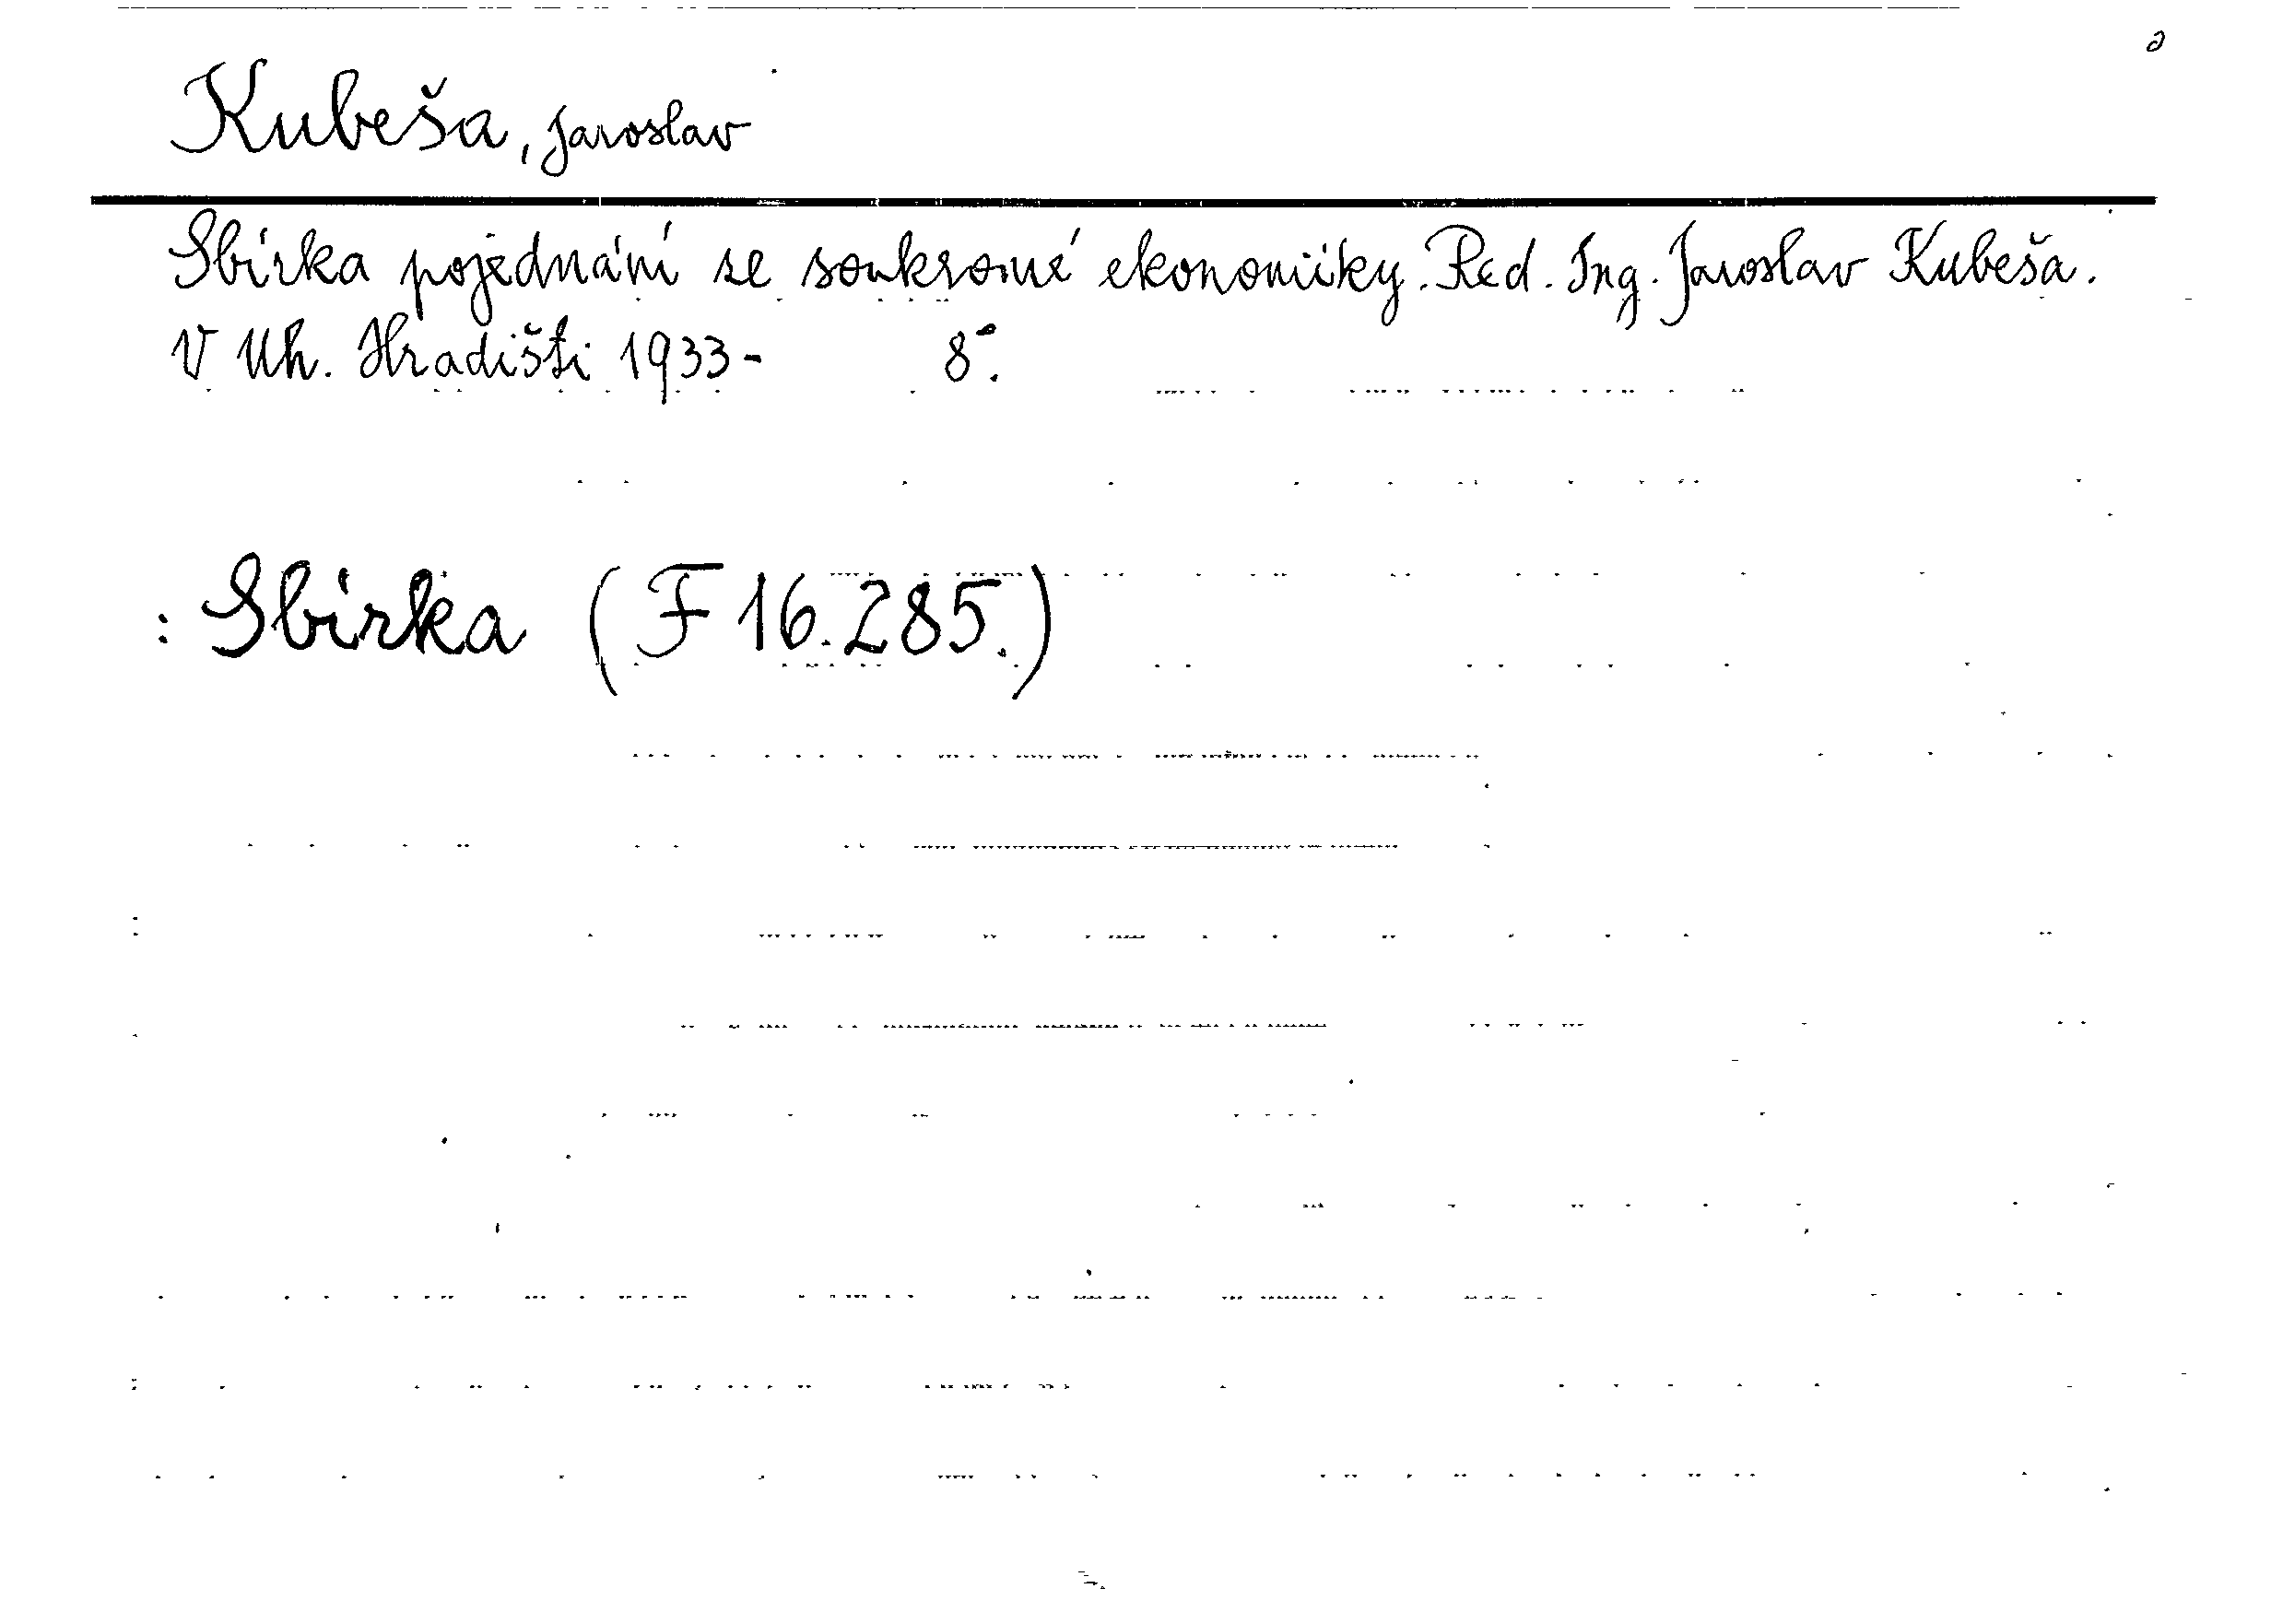 Kubeša, Jaroslav
Sbírka pojednání ze soukromé ekonomiky. Red. Ing. Jaroslav Kubeša.
V Uh. Hradišti 1933- 8°.
: Sbírka (F 16.285.)